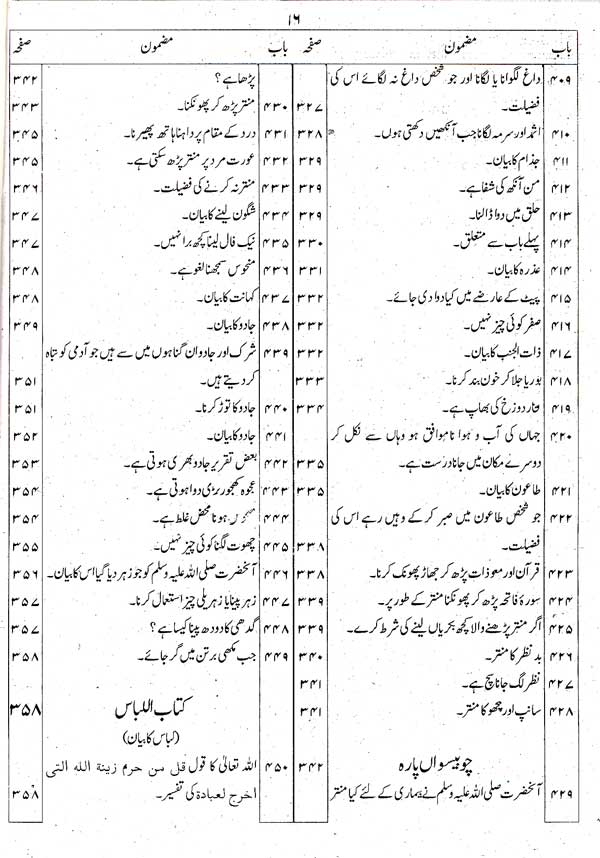 ۱۶
باب مضمون صفحہ
۴۰۹ داغ لگوانا یا لگانا اور جو شخص داغ نہ لگائے اس کی
فضیلت۔ ۳۲۷
۴۱۰ اثمد اور سرمہ لگانا جب آنکھیں دکھتی ہوں۔ ۳۲۸
۴۱۱ جذام کا بیان۔ ۳۲۹
۴۱۲ من آنکھ کی شفا ہے۔ ۳۲۹
۴۱۳ حلق میں دوا ڈالنا۔ ۳۲۹
۴۱۴ پہلے باب سے متعلق۔ ۳۳۰
۴۱۴ عذرہ کا بیان۔ ۳۳۱
۴۱۵ پیٹ کے عارضے میں کیا دوا دی جائے۔ ۳۳۲
۴۱۶ صفر کوئی چیز نہیں۔ ۳۳۲
۴۱۷ ذات الجنب کا بیان۔ ۳۳۲
۴۱۸ بوریا جلا کر خون بند کرنا۔ ۳۳۳
۴۱۹ بخار دوزخ کی بھاپ ہے۔ ۳۳۴
۴۲۰ جہاں کی آب و ہوا ناموافق ہو وہاں سے نکل کر
دوسرے مکان میں جانا درست ہے۔ ۳۳۵
۴۲۱ طاعون کا بیان۔ ۳۳۵
۴۲۲ جو شخص طاعون میں صبر کر کے وہیں رہے اس کی
فضیلت۔ ۳۳۸
۴۲۳ قرآن اور معوذات پڑھ کر جھاڑ پھونک کرنا۔ ۳۳۸
۴۲۴ سورۂ فاتحہ پڑھ کر پھونکنا منتر کے طور پر۔ ۳۳۹
۴۲۵ اگر منتر پڑھنے والا کچھ بکریاں لینے کی شرط کرے۔ ۳۳۹
۴۲۶ بد نظر کا منتر۔ ۳۴۰
۴۲۷ نظر لگ جانا سچ ہے۔ ۳۴۱
۴۲۸ سانپ اور بچھو کا منتر۔ ۳۴۱
چوبیسواں پارہ ۳۴۲
۴۲۹ آنحضرت صلی اللہ علیہ وسلم نے بیماری کے لئے کیا منتر
باب مضمون صفحہ
پڑھا ہے؟ ۳۴۲
۴۳۰ منتر پڑھ کر پھونکنا۔ ۳۴۳
۴۳۱ درد کے مقام پر داہنا ہاتھ پھیرنا۔ ۳۴۵
۴۳۲ عورت مرد پر منتر پڑھ سکتی ہے۔ ۳۴۵
۴۳۳ منتر نہ کرنے کی فضیلت۔ ۳۴۶
۴۳۴ شگون لینے کا بیان۔ ۳۴۷
۴۳۵ نیک فال لینا کچھ برا نہیں۔ ۳۴۷
۴۳۶ منحوس سمجھنا لغو ہے۔ ۳۴۸
۴۳۷ کہانت کا بیان۔ ۳۴۸
۴۳۸ جادو کا بیان۔ ۳۴۹
۴۳۹ شرک اور جادو ان گناہوں میں سے ہیں جو آدمی کو تباہ
کر دیتے ہیں۔ ۳۵۱
۴۴۰ جادو کا توڑ کرنا۔ ۳۵۱
۴۴۱ جادو کا بیان۔ ۳۵۲
۴۴۲ بعض تقریر جادو بھری ہوتی ہے۔ ۳۵۳
۴۴۳ عجوہ کھجور بڑی دوا ہوتی ہے۔ ۳۵۴
۴۴۴ ہونا محض غلط ہے۔ ۳۵۴
۴۴۵ چھوت لگنا کوئی چیز نہیں۔ ۳۵۵
۴۴۶ آنحضرت صلی اللہ علیہ وسلم کو جو زہر دیا گیا اس کا بیان۔ ۳۵۶
۴۴۷ زہر پینا یا زہریلی چیز استعمال کرنا۔ ۳۵۷
۴۴۸ گدھی کا دودھ پینا کیسا ہے؟ ۳۵۷
۴۴۹ جب مکھی برتن میں گر جائے۔ ۳۵۸
کتاب اللباس ۳۵۸
(لباس کا بیان)
۴۵۰ اللہ تعالیٰ کا قول قل من حرم زینة اللہ التی
اخرج لعبادہ کی تفسیر۔ ۳۵۸